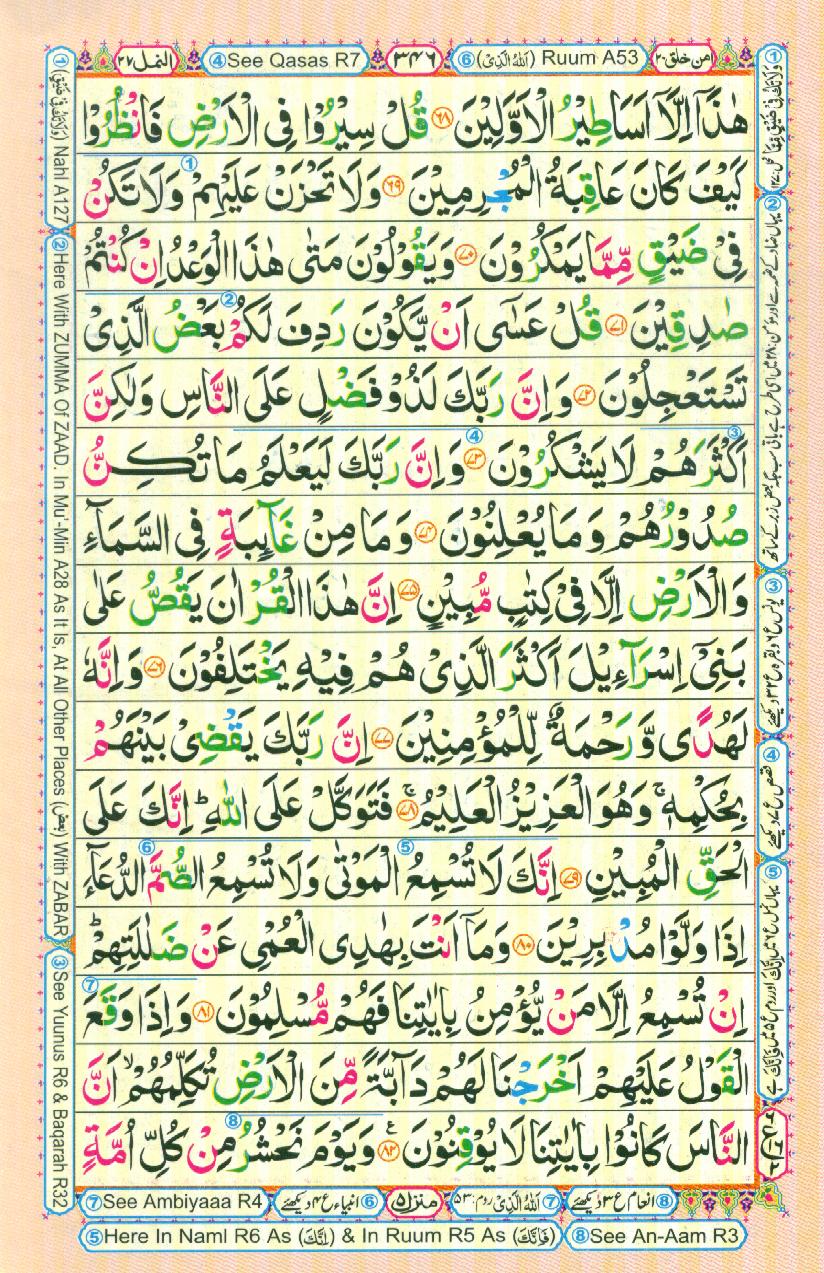 النمل ٢٧
④See Qasas R7
٣٤٦
⑥(اللهُ الَّذِىْ) Ruum A53
امن خلق ٢٠
هٰذَاۤ اِلَّاۤ اَسَاطِيْرُ الْاَوَّلِيْنَ ﴿٦٨﴾ قُلْ سِيْرُوْا فِى الْاَرْضِ فَانْظُرُوْا
كَيْفَ كَانَ عَاقِبَةُ الْمُجْرِمِيْنَ ﴿٦٩﴾ وَلَا تَحْزَنْ عَلَيْهِمْ وَلَا تَكُنْ
فِىْ ضَيْقٍ مِّمَّا يَمْكُرُوْنَ ﴿٧٠﴾ وَيَقُوْلُوْنَ مَتٰى هٰذَا الْوَعْدُ اِنْ كُنْتُمْ
صٰدِقِيْنَ ﴿٧١﴾ قُلْ عَسٰٓى اَنْ يَّكُوْنَ رَدِفَ لَكُمْ بَعْضُ الَّذِىْ
تَسْتَعْجِلُوْنَ ﴿٧٢﴾ وَاِنَّ رَبَّكَ لَذُوْ فَضْلٍ عَلَى النَّاسِ وَلٰكِنَّ
اَكْثَرَهُمْ لَا يَشْكُرُوْنَ ﴿٧٣﴾ وَاِنَّ رَبَّكَ لَيَعْلَمُ مَا تُكِنُّ
صُدُوْرُهُمْ وَمَا يُعْلِنُوْنَ ﴿٧٤﴾ وَمَا مِنْ غَآئِبَةٍ فِى السَّمَآءِ
وَالْاَرْضِ اِلَّا فِىْ كِتٰبٍ مُّبِيْنٍ ﴿٧٥﴾ اِنَّ هٰذَا الْقُرْاٰنَ يَقُصُّ عَلٰى
بَنِىْۤ اِسْرَآءِيْلَ اَكْثَرَ الَّذِىْ هُمْ فِيْهِ يَخْتَلِفُوْنَ ﴿٧٦﴾ وَاِنَّهٗ
لَهُدًى وَّرَحْمَةٌ لِّلْمُؤْمِنِيْنَ ﴿٧٧﴾ اِنَّ رَبَّكَ يَقْضِىْ بَيْنَهُمْ
بِحُكْمِهٖ ۚ وَهُوَ الْعَزِيْزُ الْعَلِيْمُ ﴿٧٨﴾ ۚ فَتَوَكَّلْ عَلَى اللّٰهِ ؕ اِنَّكَ عَلَى
الْحَقِّ الْمُبِيْنِ ﴿٧٩﴾ اِنَّكَ لَا تُسْمِعُ الْمَوْتٰى وَلَا تُسْمِعُ الصُّمَّ الدُّعَآءَ
اِذَا وَلَّوْا مُدْبِرِيْنَ ﴿٨٠﴾ وَمَاۤ اَنْتَ بِهٰدِى الْعُمْىِ عَنْ ضَلٰلَتِهِمْ ؕ
اِنْ تُسْمِعُ اِلَّا مَنْ يُّؤْمِنُ بِاٰيٰتِنَا فَهُمْ مُّسْلِمُوْنَ ﴿٨١﴾ وَاِذَا وَقَعَ
الْقَوْلُ عَلَيْهِمْ اَخْرَجْنَا لَهُمْ دَآبَّةً مِّنَ الْاَرْضِ تُكَلِّمُهُمْ ۙ اَنَّ
النَّاسَ كَانُوْا بِاٰيٰتِنَا لَا يُوْقِنُوْنَ ﴿٨٢﴾ وَيَوْمَ نَحْشُرُ مِنْ كُلِّ اُمَّةٍ
① (وَلَا تَكُ فِىْ ضَيْقٍ) Nahl A127
② Here With ZUMMA Of ZAAD. In Mu'-Min A28 As It Is, At All Other Places (بعضَ) With ZABAR
③ See Yuunus R6 & Baqarah R32
③ یونس ع ۶ و بقرہ ع ۳۲ دیکھئے
④ قصص ع ۷ دیکھئے
⑧ انعام ع ۳ دیکھئے
⑦ اللهُ الَّذِىْ روم: ۵۳
منزل ۵
⑥ انبیاء ع ۴ دیکھئے
⑦See Ambiyaaa R4
⑤Here In Naml R6 As (اِنَّكَ) & In Ruum R5 As (فَاِنَّكَ)
⑧See An-Aam R3